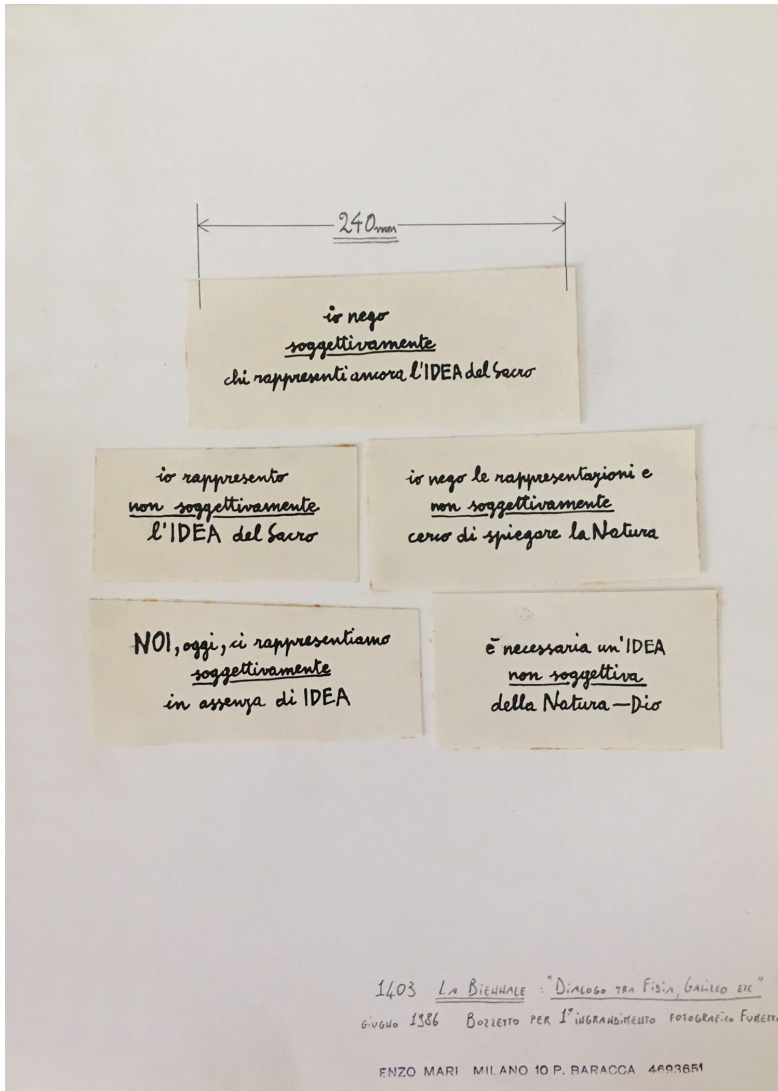 240mm
io nego
soggettivamente
chi rappresenti ancora l'IDEA del Sacro
io rappresento
non soggettivamente
l'IDEA del Sacro
io nego le rappresentazioni e
non soggettivamente
cerco di spiegare la Natura
NOI, oggi, ci rappresentiamo
soggettivamente
in assenza di IDEA
è necessaria un'IDEA
non soggettiva
della Natura—Dio
1403 LA BIENNALE : "DIALOGO TRA FIDIA, GALILEO ETC"
GIUGNO 1986 BOZZETTO PER 1° INGRANDIMENTO FOTOGRAFICO
ENZO MARI MILANO 10 P. BARACCA 4693651